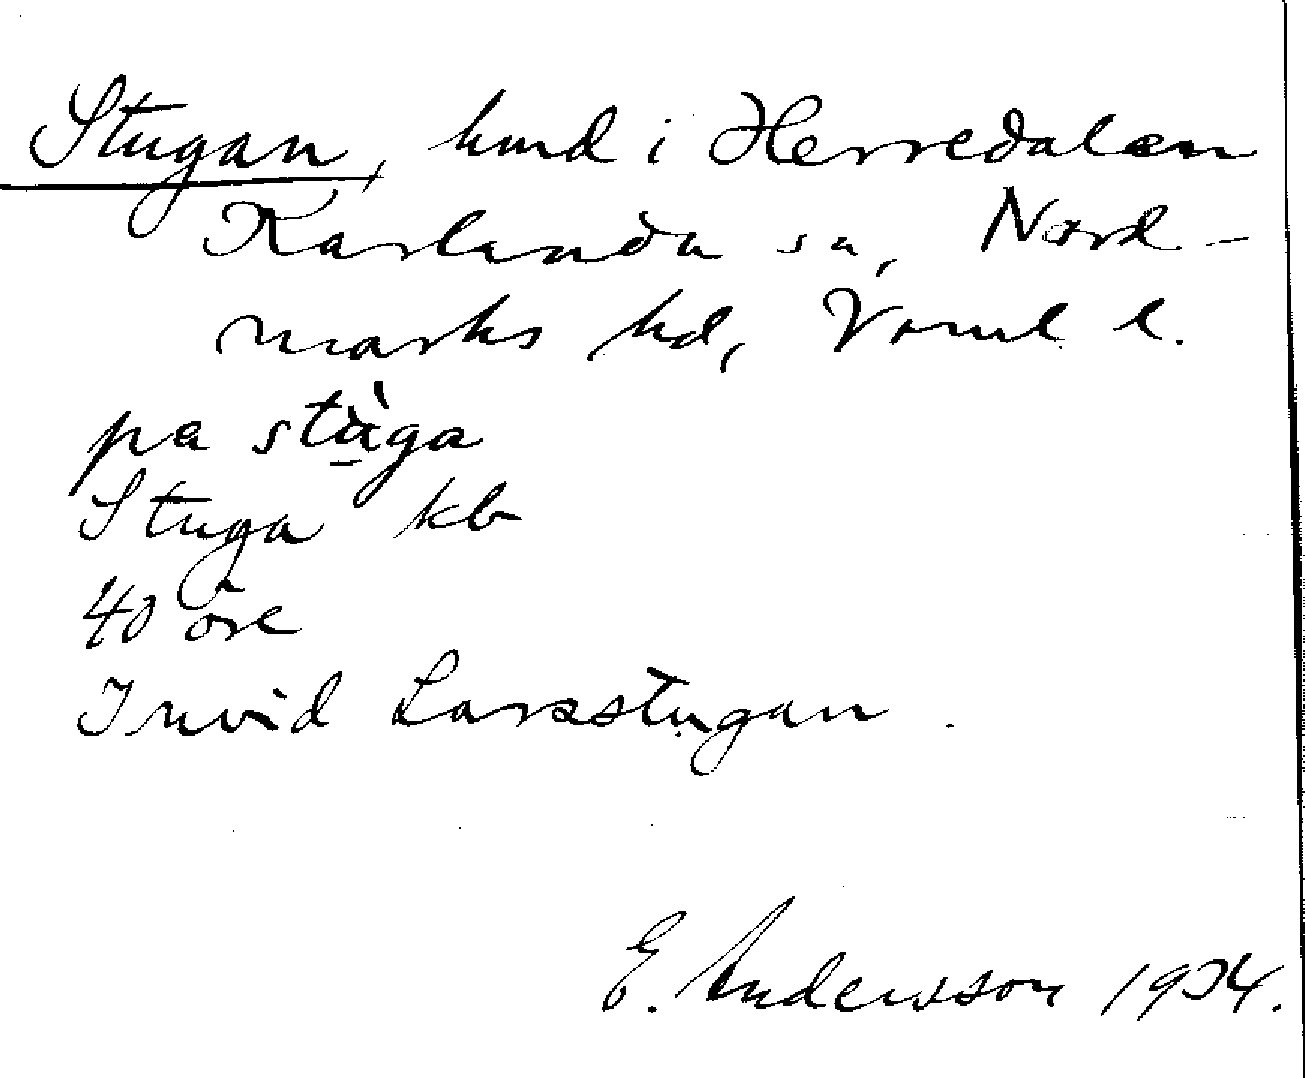 Stugan, hmd i Herredalen
Karlanda sn, Nord-
marks hd, Vrml l.
på stùga
Stuga kb
40 öre
Invid Larsstugan.
E. Andersson 1924.